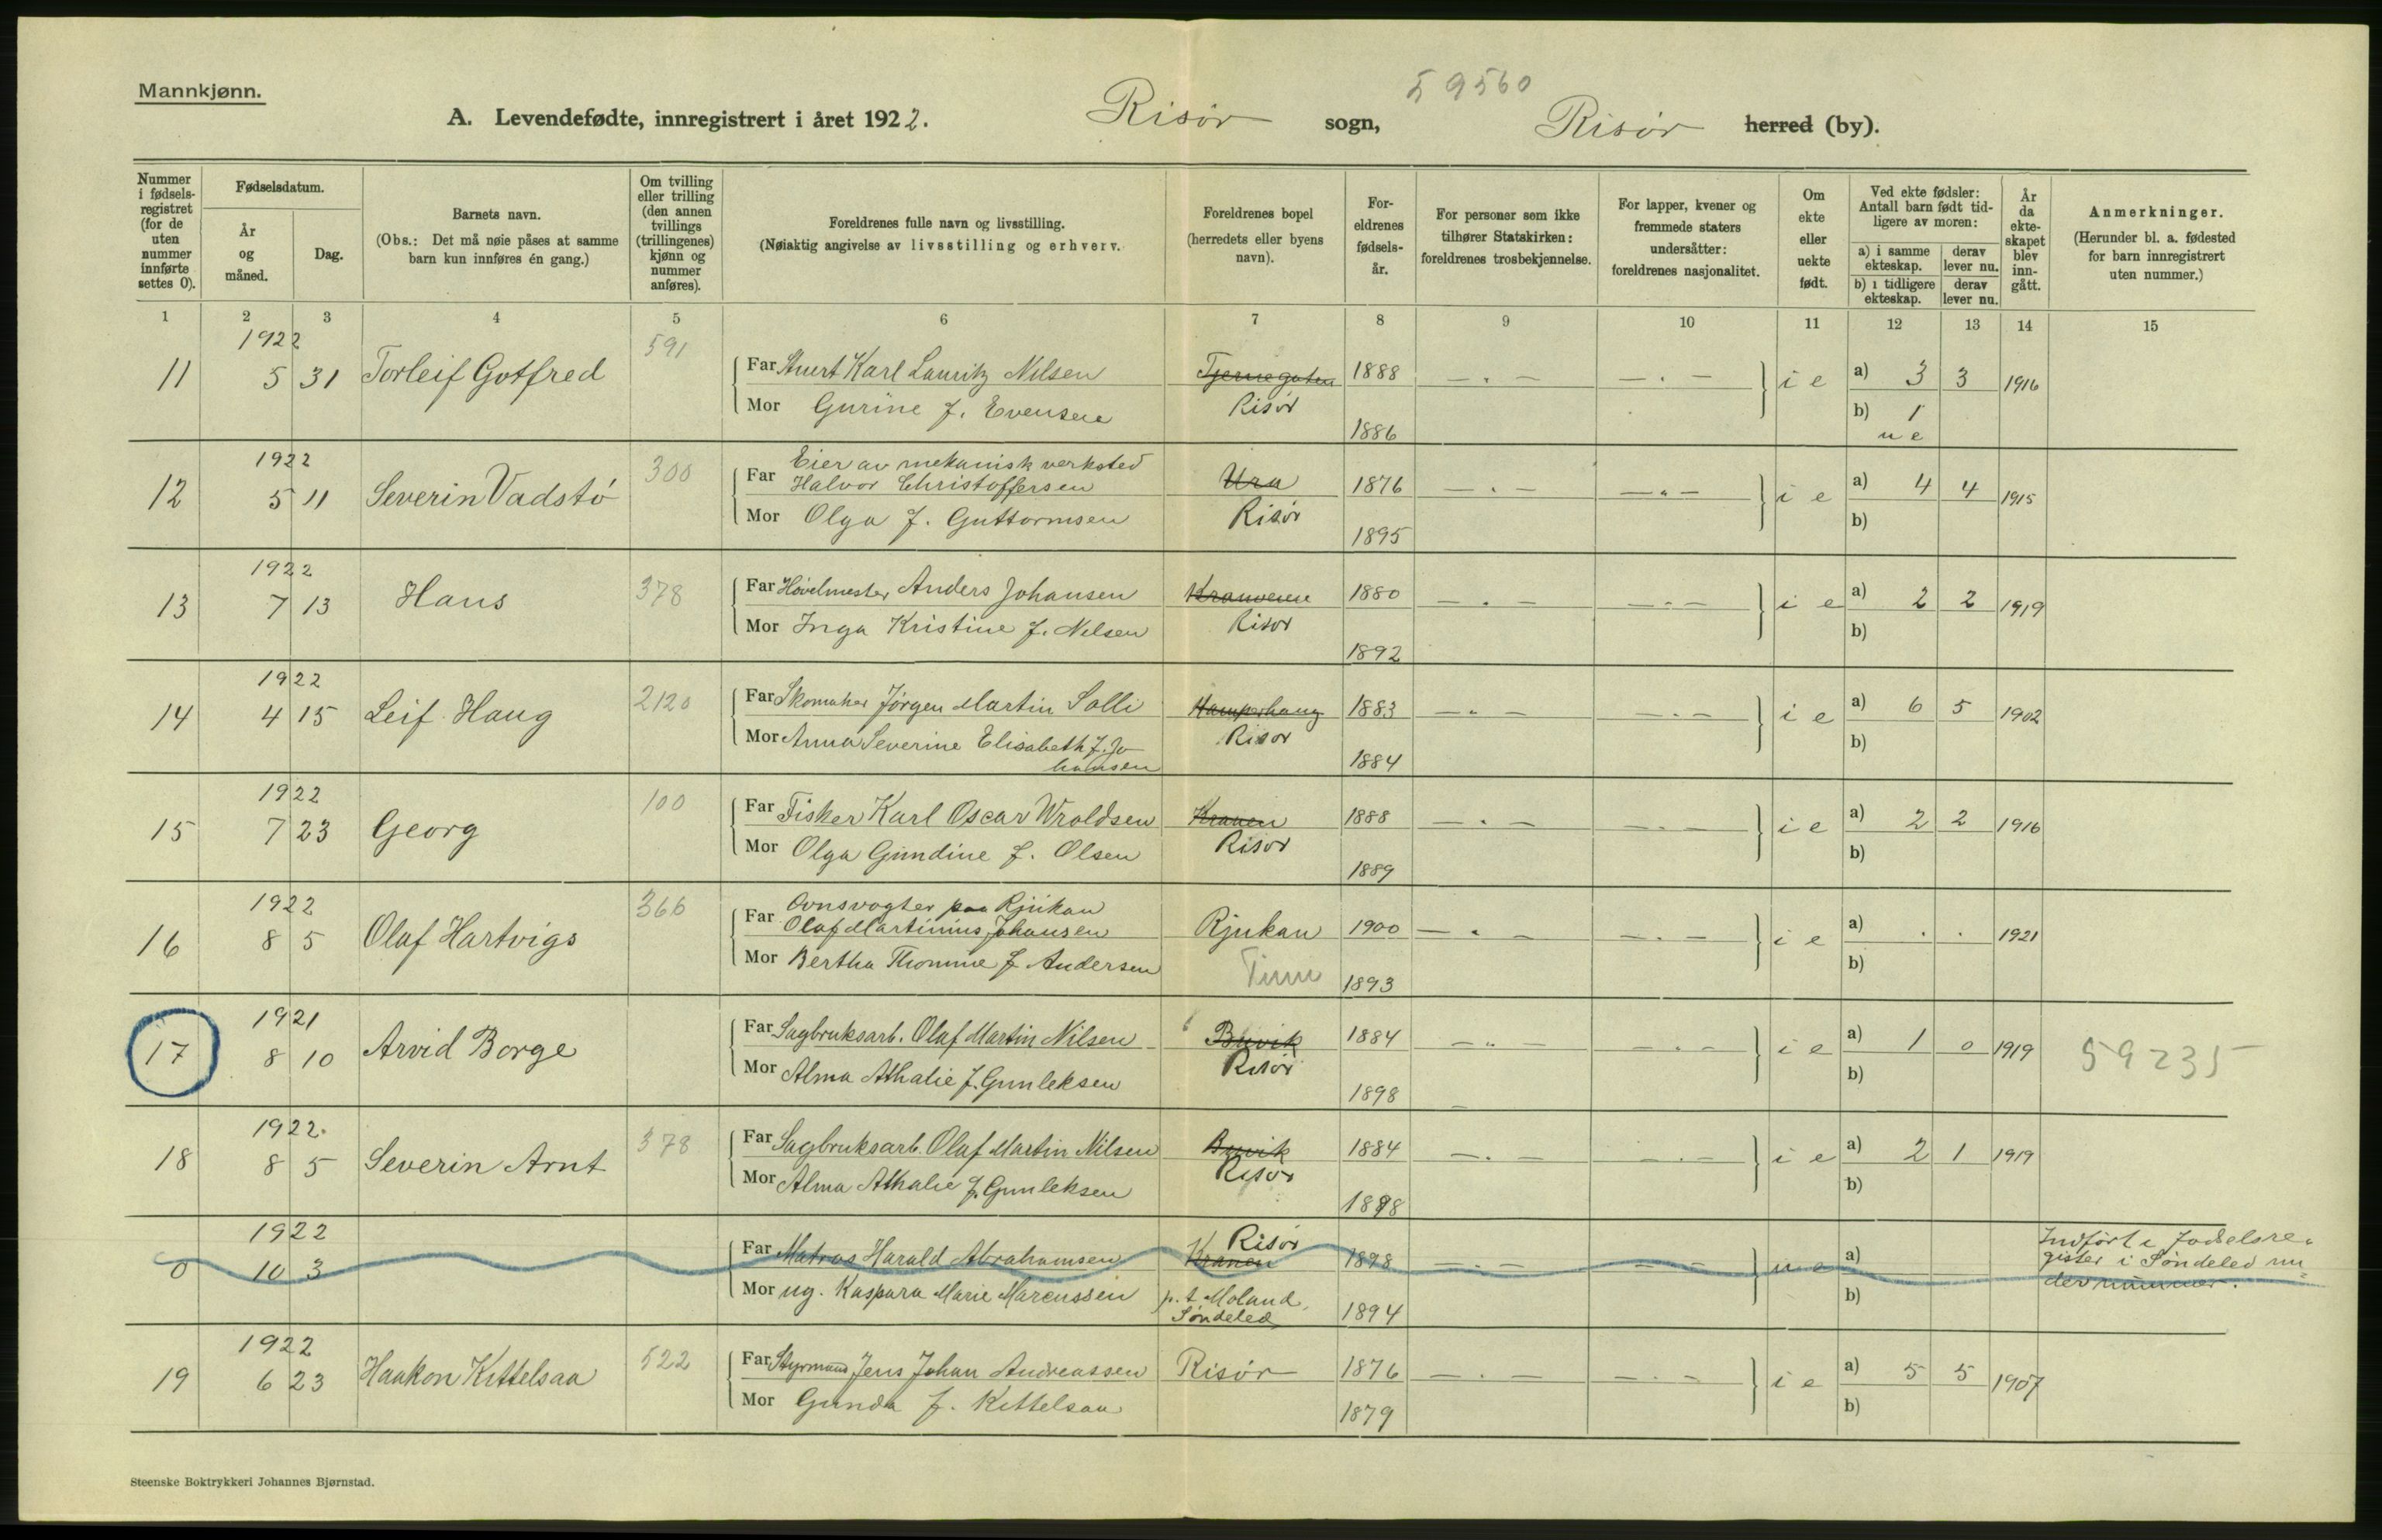 Mannkjønn.
59560
A. Levendefødte, innregistrert i året 1922. Risør sogn, Risør herred (by).
Nummer i fødsels-registret (for de uten nummer innførte settes 0).
Fødselsdatum.
År og måned.
Dag.
Barnets navn.
(Obs.: Det må nøie påses at samme barn kun innføres én gang.)
Om tvilling eller trilling (den annen tvillings (trillingenes) kjønn og nummer anføres).
Foreldrenes fulle navn og livsstilling.
(Nøiaktig angivelse av livsstilling og erhverv.
Foreldrenes bopel (herredets eller byens navn).
For-eldrenes fødsels-år.
For personer som ikke tilhører Statskirken: foreldrenes trosbekjennelse.
For lapper, kvener og fremmede staters undersåtter: foreldrenes nasjonalitet.
Om ekte eller uekte født.
Ved ekte fødsler: Antall barn født tid-ligere av moren:
a) i samme ekteskap.
derav lever nu.
b) i tidligere ekteskap.
derav lever nu.
År da ekte-skapet blev inn-gått.
Anmerkninger.
(Herunder bl. a. fødested for barn innregistrert uten nummer.)
1 2 3 4 5 6 7 8 9 10 11 12 13 14 15
1922 591
11 5 31 Torleif Gotfred Far Stuert Karl Lauritz Nilsen Tjernegaten 1888 — . — — . — i e a) 3 3 1916
Mor Gurine f. Evensen Risør 1886 b) 1
u e
1922 300 Eier av mekanisk verksted
12 5 11 Severin Vadstø Far Halvor Christoffersen Ura 1876 — . — — . — i e a) 4 4 1915
Mor Olga f. Guttormsen Risør 1895 b)
1922
13 7 13 Hans 378 Far Høvelmester Anders Johansen Kranveien 1880 — . — — . — i e a) 2 2 1919
Mor Inga Kristine f. Nilsen Risør 1892 b)
1922
14 4 15 Leif Haug 2120 Far Skomaker Jørgen Martin Solli Hamperhaug 1883 — . — — . — i e a) 6 5 1902
Mor Anna Severine Elisabeth f. Jo- Risør 1884 b)
hansen
1922
15 7 23 Georg 100 Far Fisker Karl Oscar Wroldsen Kranen 1888 — . — — . — i e a) 2 2 1916
Mor Olga Gundine f. Olsen Risør 1889 b)
1922 366 Ovnsvogter paa Rjukan
16 8 5 Olaf Hartvigs Far Olaf Martinius Johansen Rjukan 1900 — . — — . — i e a) . . 1921
Mor Bertha Thomine f Andersen Tinn 1893 b)
1921
17 8 10 Arvid Borge Far Sagbruksarb. Olaf Martin Nilsen Buvik 1884 — . — — . — i e a) 1 0 1919 59235
Mor Alma Athalie f. Gunleksen Risør 1898 — b)
1922.
18 8 5 Severin Arnt 378 Far Sagbruksarb. Olaf Martin Nilsen Buvik 1884 — . — — . — i e a) 2 1 1919
Mor Alma Athalie f. Gunleksen Risør 1898 b)
1922 Risør Indført i Fødselsre-
0 10 3 Far Matros Harald Abrahamsen Kranen 1898 — . — — . — u e a) gister i Søndeled un-
der nummer.
Mor ug. Kaspara Marie Marcussen p. t Moland, 1894 b)
Søndeled
1922
19 6 23 Haakon Kittelsaa 522 Far Styrmand Jens Johan Andreassen Risør 1876 — . — — . — i e a) 5 5 1907
Mor Gunda f. Kittelsaa 1879 b)
Steenske Boktrykkeri Johannes Bjørnstad.